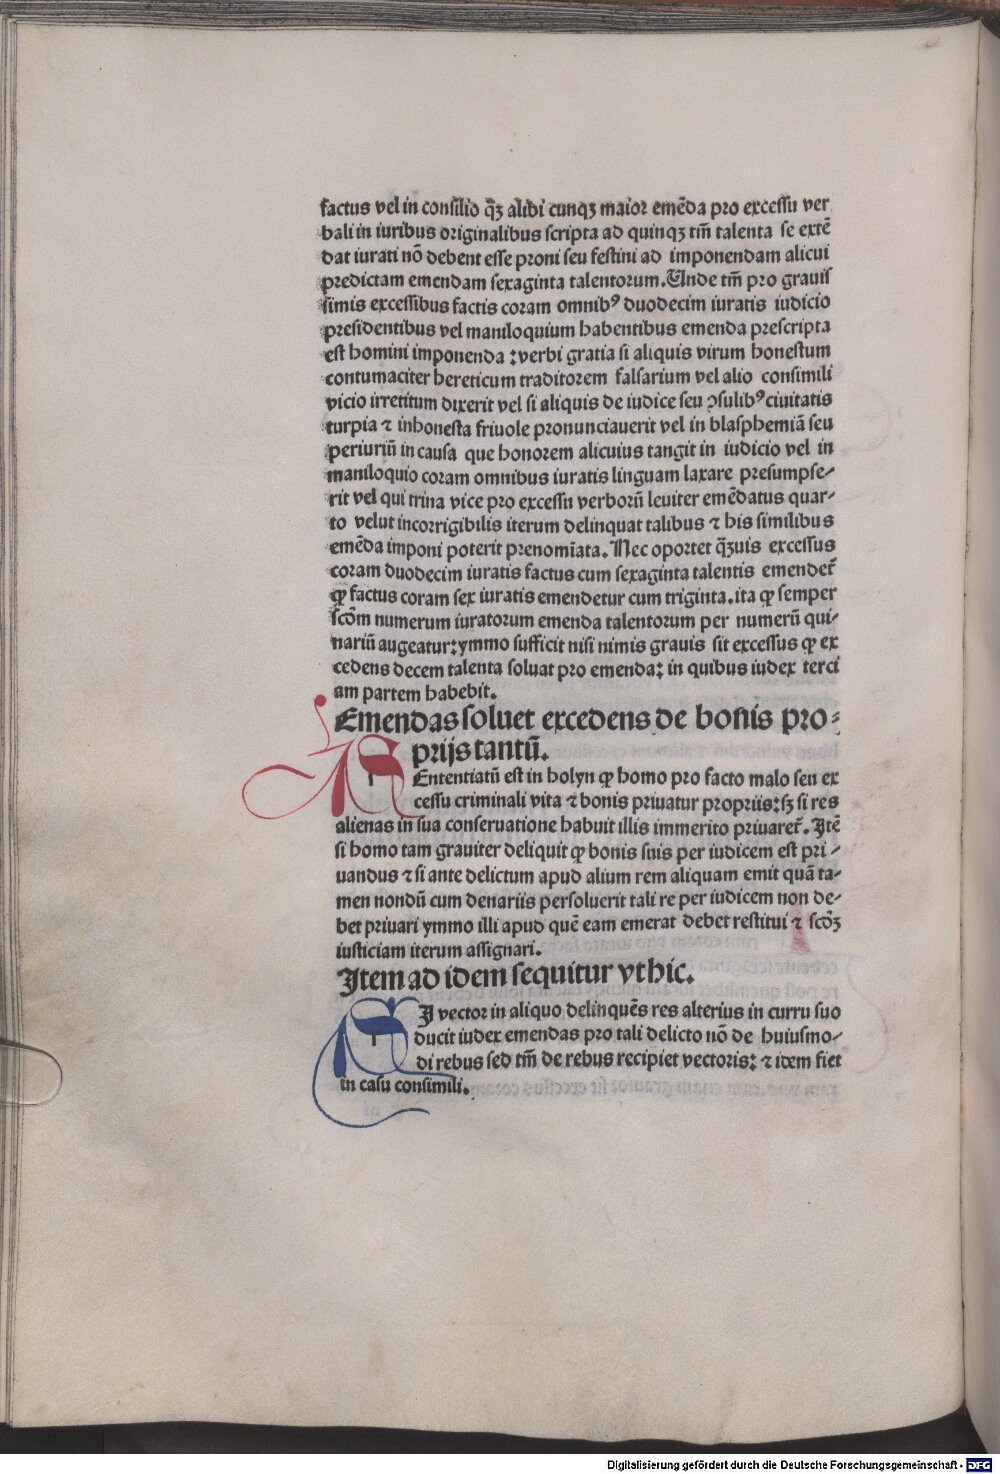 factus vel in consilio q̄ꝫ alibi cunqꝫ maior emēda pro excessu ver
bali in iuribus originalibus scripta ad quinqꝫ tm̄ talenta se extē
dat iurati nō debent esse proni seu festini ad imponendam alicui
predictam emendam sexaginta talentorum. Unde tm̄ pro grauis
simis excessibus factis coram omnibꝰ duodecim iuratis iudicio
presidentibus vel maniloquium habentibus emenda prescripta
est homini imponenda : verbi gratia si aliquis virum honestum
contumaciter hereticum traditorem falsarium vel alio consimili
vicio irretitum dixerit vel si aliquis de iudice seu ꝯsulibꝰ ciuitatis
turpia ⁊ inhonesta friuole pronunciauerit vel in blasphemiā seu
periuriū in causa que honorem alicuius tangit in iudicio vel in
maniloquio coram omnibus iuratis linguam laxare presumpse-
rit vel qui trina vice pro excessu verborū leuiter emēdatus quar-
to velut incorrigibilis iterum delinquat talibus ⁊ his similibus
emēda imponi poterit prenomiata. Nec oportet q̄ꝫuis excessus
coram duodecim iuratis factus cum sexaginta talentis emendet̄
ꝙ factus coram sex iuratis emendetur cum triginta. ita ꝙ semper
scōm numerum iuratorum emenda talentorum per numerū qui-
nariū augeatur: ymmo sufficit nisi nimis grauis sit excessus ꝙ ex
cedens decem talenta soluat pro emenda: in quibus iudex terci
am partem habebit.
Emendas soluet excedens de bonis pro-
prijs tantū.
SEntentiatū est in bolyn ꝙ homo pro facto malo seu ex
cessu criminali vita ⁊ bonis priuatur propriis: sꝫ si res
alienas in sua conseruatione habuit illis immerito priuaret̄. Itē
si homo tam grauiter deliquit ꝙ bonis suis per iudicem est pri-
uandus ⁊ si ante delictum apud alium rem aliquam emit quā ta-
men nondū cum denariis persoluerit tali re per iudicem non de-
bet priuari ymmo illi apud quē eam emerat debet restitui ⁊ scōꝫ
iusticiam iterum assignari.
Item ad idem sequitur vt hic.
SI vector in aliquo delinquēs res alterius in curru suo
ducit iudex emendas pro tali delicto nō de huiusmo-
di rebus sed tm̄ de rebus recipiet vectoris: ⁊ idem fiet
in casu consimili.
Digitalisierung gefördert durch die Deutsche Forschungsgemeinschaft - DFG